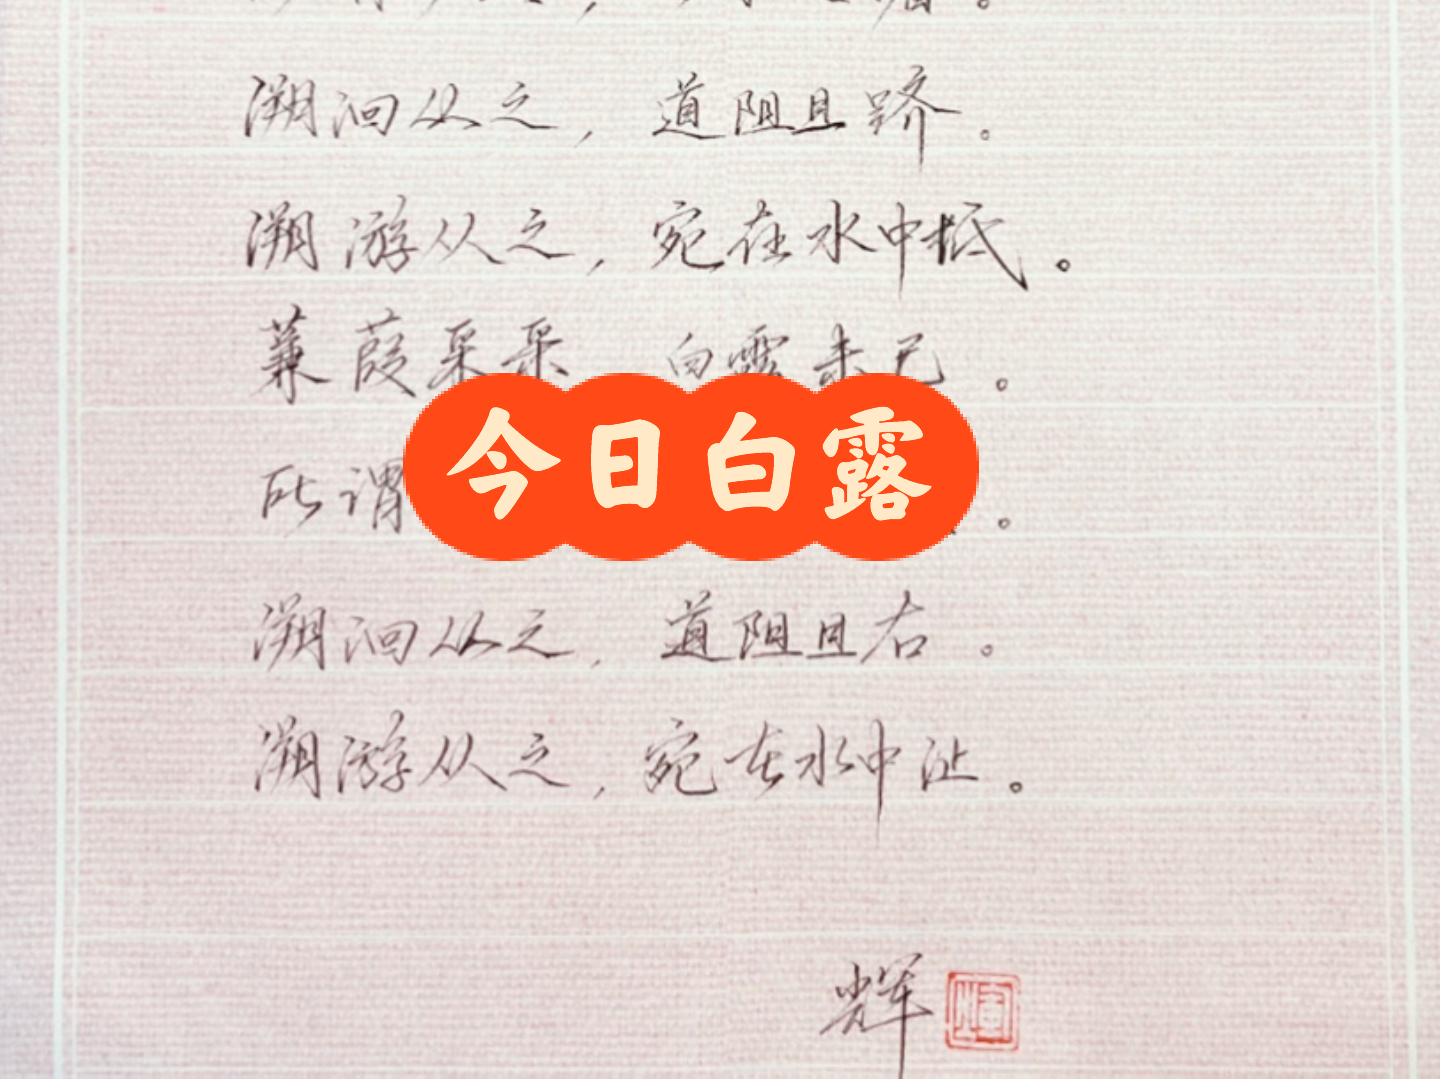 溯洄从之，道阻且跻。
溯游从之，宛在水中坻。
蒹葭采采 白露未已。
今日白露
所谓 。
溯洄从之，道阻且右。
溯游从之，宛在水中沚。
辉